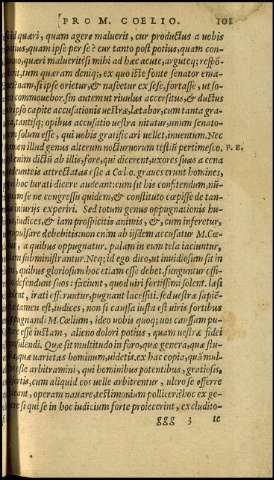 PRO M. COELIO. 101
id quæri, quam agere maluerit, cur productus a uobis
potius, quam ipse per se è cur tanto post potius, quam con-
, quæri maluerit: si mihi ad hæc acute, arguteq; respõ-
tum, quæram deniq; ex quo iste fonte senator ema-
nam, si ipse orietur, & nascetur ex se, fortasse, ut so-
commouebor. sin autem ut riuulus accersitus, & ductus
ipso capite accusationis uestræ, lætabor, cum tanta gra-
, tantisq; opibus accusatio uestra nitatur, unum senato-
solum esse, qui uobis gratificari uellet, inuentum. Nec
illud genus alterum nocturnorum testiũ pertimesco. P. E,
dictũ ab illis, fore, qui dicerent, uxores suas a cena
attrectatas esse a Cælio. graues erunt homines,
hoc iurati dicere audeant: cum sit his confitendum, nũ-
se ne congressu quidem, & constituto cœpisse de tan-
iniurys experiri. Sed totum genus oppugnationis hu-
iudices, & iam prospicitis animis, & , cum inferetur,
debebitis. non enim ab ijsdem accusatur M. Cæ-
, a quibus oppugnatur. palam in eum tela iaciuntur,
subministrantur. Neq; id ego dico, ut inuidiosum sit in
, quibus gloriosum hoc etiam esse debet. funguntur offi-
defendunt suos: faciunt, quod uiri fortissimi solent. læsi
, irati efferuntur, pugnant lacessiti. sed uestræ sapiẽ-
tamen est, iudices, non si caussa iusta est uiris fortibus
M. Cælium, ideo uobis quoq; uos caussam pu-
esse iustam, alieno dolori potius, quam uestræ fidei
. Quæ sit multitudo in foro, quæ genera, quæ stu-
quæ uarietas hominum, uidetis. ex hac copia, quã mul-
esse arbitramini, qui hominibus potentibus, gratiosis,
, cum aliquid eos uelle arbitrentur, ultro se offerre
, operam nauare, testimonium polliceri? hoc ex ge-
si qui se in hoc iudicium forte proiecerint, excludito-
ggg 3 te